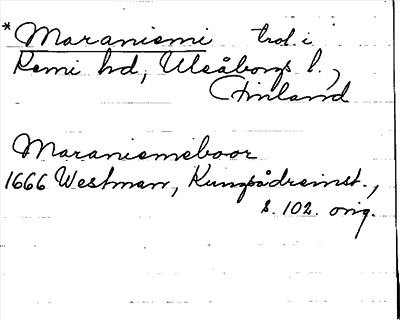 * Maraniemi trol. i
Kemi hd, Uleåborgs l.,
Finland
Maraniemeboor
1666 Westman, Kungsådreinst.,
s. 102. orig.